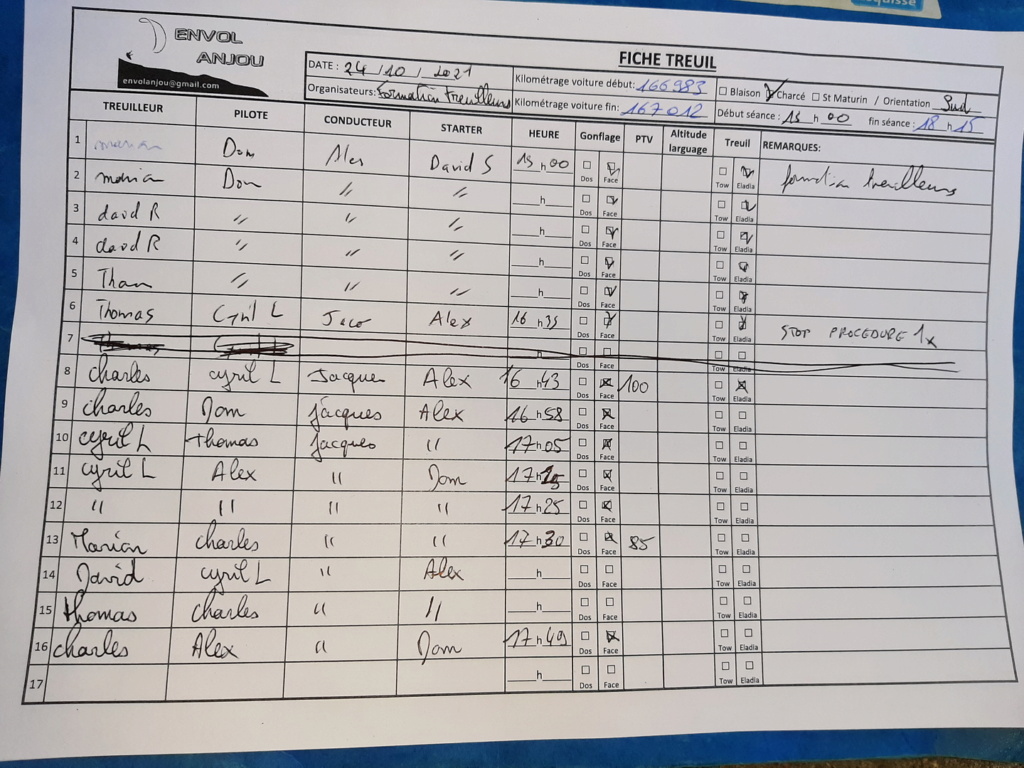 ENVOL
ANJOU
envolanjou@gmail.com
FICHE TREUIL
DATE : 24/10/2021
Organisateurs: Formation treuilleurs
Kilométrage voiture début: 166983
Kilométrage voiture fin: 167012
☐ Blaison ☑ Charcé ☐ St Maturin / Orientation Sud
Début séance : 15 h 00 fin séance : 18 h 15
TREUILLEUR PILOTE CONDUCTEUR STARTER HEURE Gonflage PTV Altitude larguage Treuil REMARQUES:
1 marian Dom Alex David S 15 h 00 ☐ Dos ☑ Face ☐ Tow ☑ Eladia formation treuilleurs
2 marian Dom " " __h__ ☐ Dos ☑ Face ☐ Tow ☑ Eladia
3 david R " " " __h__ ☐ Dos ☑ Face ☐ Tow ☑ Eladia
4 david R " " " __h__ ☐ Dos ☑ Face ☐ Tow ☑ Eladia
5 Thom " " " __h__ ☐ Dos ☑ Face ☐ Tow ☑ Eladia
6 Thomas Cyril L Jaco Alex 16 h 35 ☐ Dos ☑ Face ☐ Tow ☑ Eladia STOP PROCEDURE 1x
7 __h__ ☐ Dos ☐ Face ☐ Tow ☐ Eladia
8 charles cyril L Jacques Alex 16 h 43 ☐ Dos ☒ Face 100 ☐ Tow ☒ Eladia
9 charles Dom jacques Alex 16 h 58 ☐ Dos ☒ Face ☐ Tow ☐ Eladia
10 cyril L thomas jacques " 17 h 05 ☐ Dos ☒ Face ☐ Tow ☐ Eladia
11 cyril L Alex " Dom 17 h 15 ☐ Dos ☒ Face ☐ Tow ☐ Eladia
12 " " " " 17 h 25 ☐ Dos ☒ Face ☐ Tow ☐ Eladia
13 Marian charles " " 17 h 30 ☐ Dos ☒ Face 85 ☐ Tow ☐ Eladia
14 David cyril L " Alex __h__ ☐ Dos ☐ Face ☐ Tow ☐ Eladia
15 thomas charles " " __h__ ☐ Dos ☐ Face ☐ Tow ☐ Eladia
16 charles Alex " Dom 17 h 49 ☐ Dos ☒ Face ☐ Tow ☐ Eladia
17 __h__ ☐ Dos ☐ Face ☐ Tow ☐ Eladia